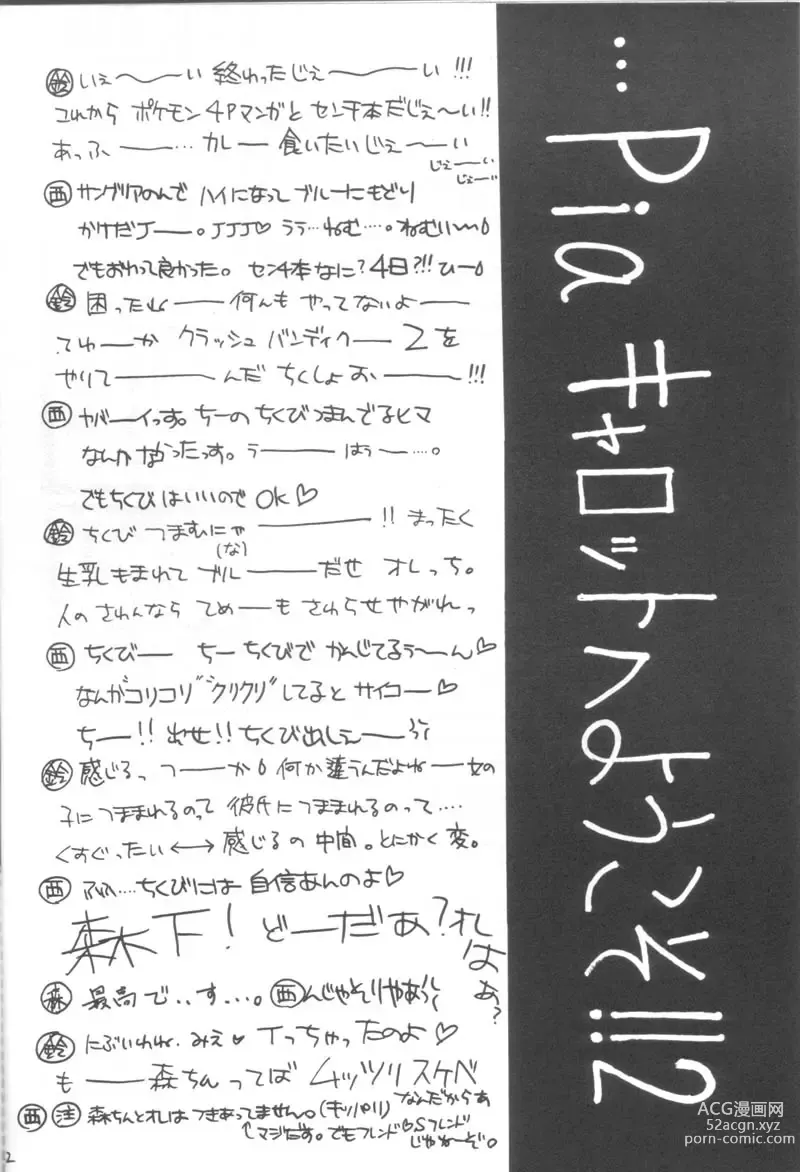 鈴 いぇ〜〜い 終わったじぇ〜〜い!!!
これから ポケモン 4Pマンガと センチ本だじぇ〜い!!
あっふ ──… カレー 食いたいじぇ〜〜い
じぇ〜〜い
じぇ〜い
西 サングリアのんで ハイになって ブルーにもどり
かけだJ──。JJJ♡ ララ…ねむ…。ねむい〜〜
でもおわって良かった。センチ本なに?4日?!!ひー
鈴 困ったね── 何んも やってないよ──
てゆ──か クラッシュ バンディクー 2を
やりて────んだ ちくしょお────!!!
西 ヤバーイっす。ちーの ちくびつまんでるヒマ
なんかなかったっす。う── はぅ──…。
でもちくびはいいので OK♡
鈴 ちくび つまむにゃ ────!! まったく
(な)
生乳もまれて ブル──だぜ オレっち。
人の さわんなら てめーも さわらせやがれっ
西 ちくび── ちー ちくびで かんじてるぅ〜〜ん♡
なんがコリコリ"クリクリ"してると サイコー♡
ち──!! 出せ!! ちくび出しぇ──
鈴 感じるっ つ──か 何か違うんだよね──女の
子につままれるのって 彼氏につままれるのって….
くすぐったい ←→ 感じるの 中間。とにかく変。
西 ふふ….ちくびには 自信あんのよ♡
森木下! ど─だぁ?オレ
はぁ?
森 最高で‥す…。西 んじゃそりゃあぅ
鈴 にぶいわね. みえ♥ Tっちゃったのよ♡
も──森ちんってば ムッツリ スケベ
なんだからぁ
西 注 森ちんとオレは つきあってません。(キッパリ)
↑マジだす。でもフレンド♡Sフレンド
じゃね〜ぞ。
2
…Pia キャロットへようこそ!!2
ACG漫画网
52acgn.xyz
porn-comic.com